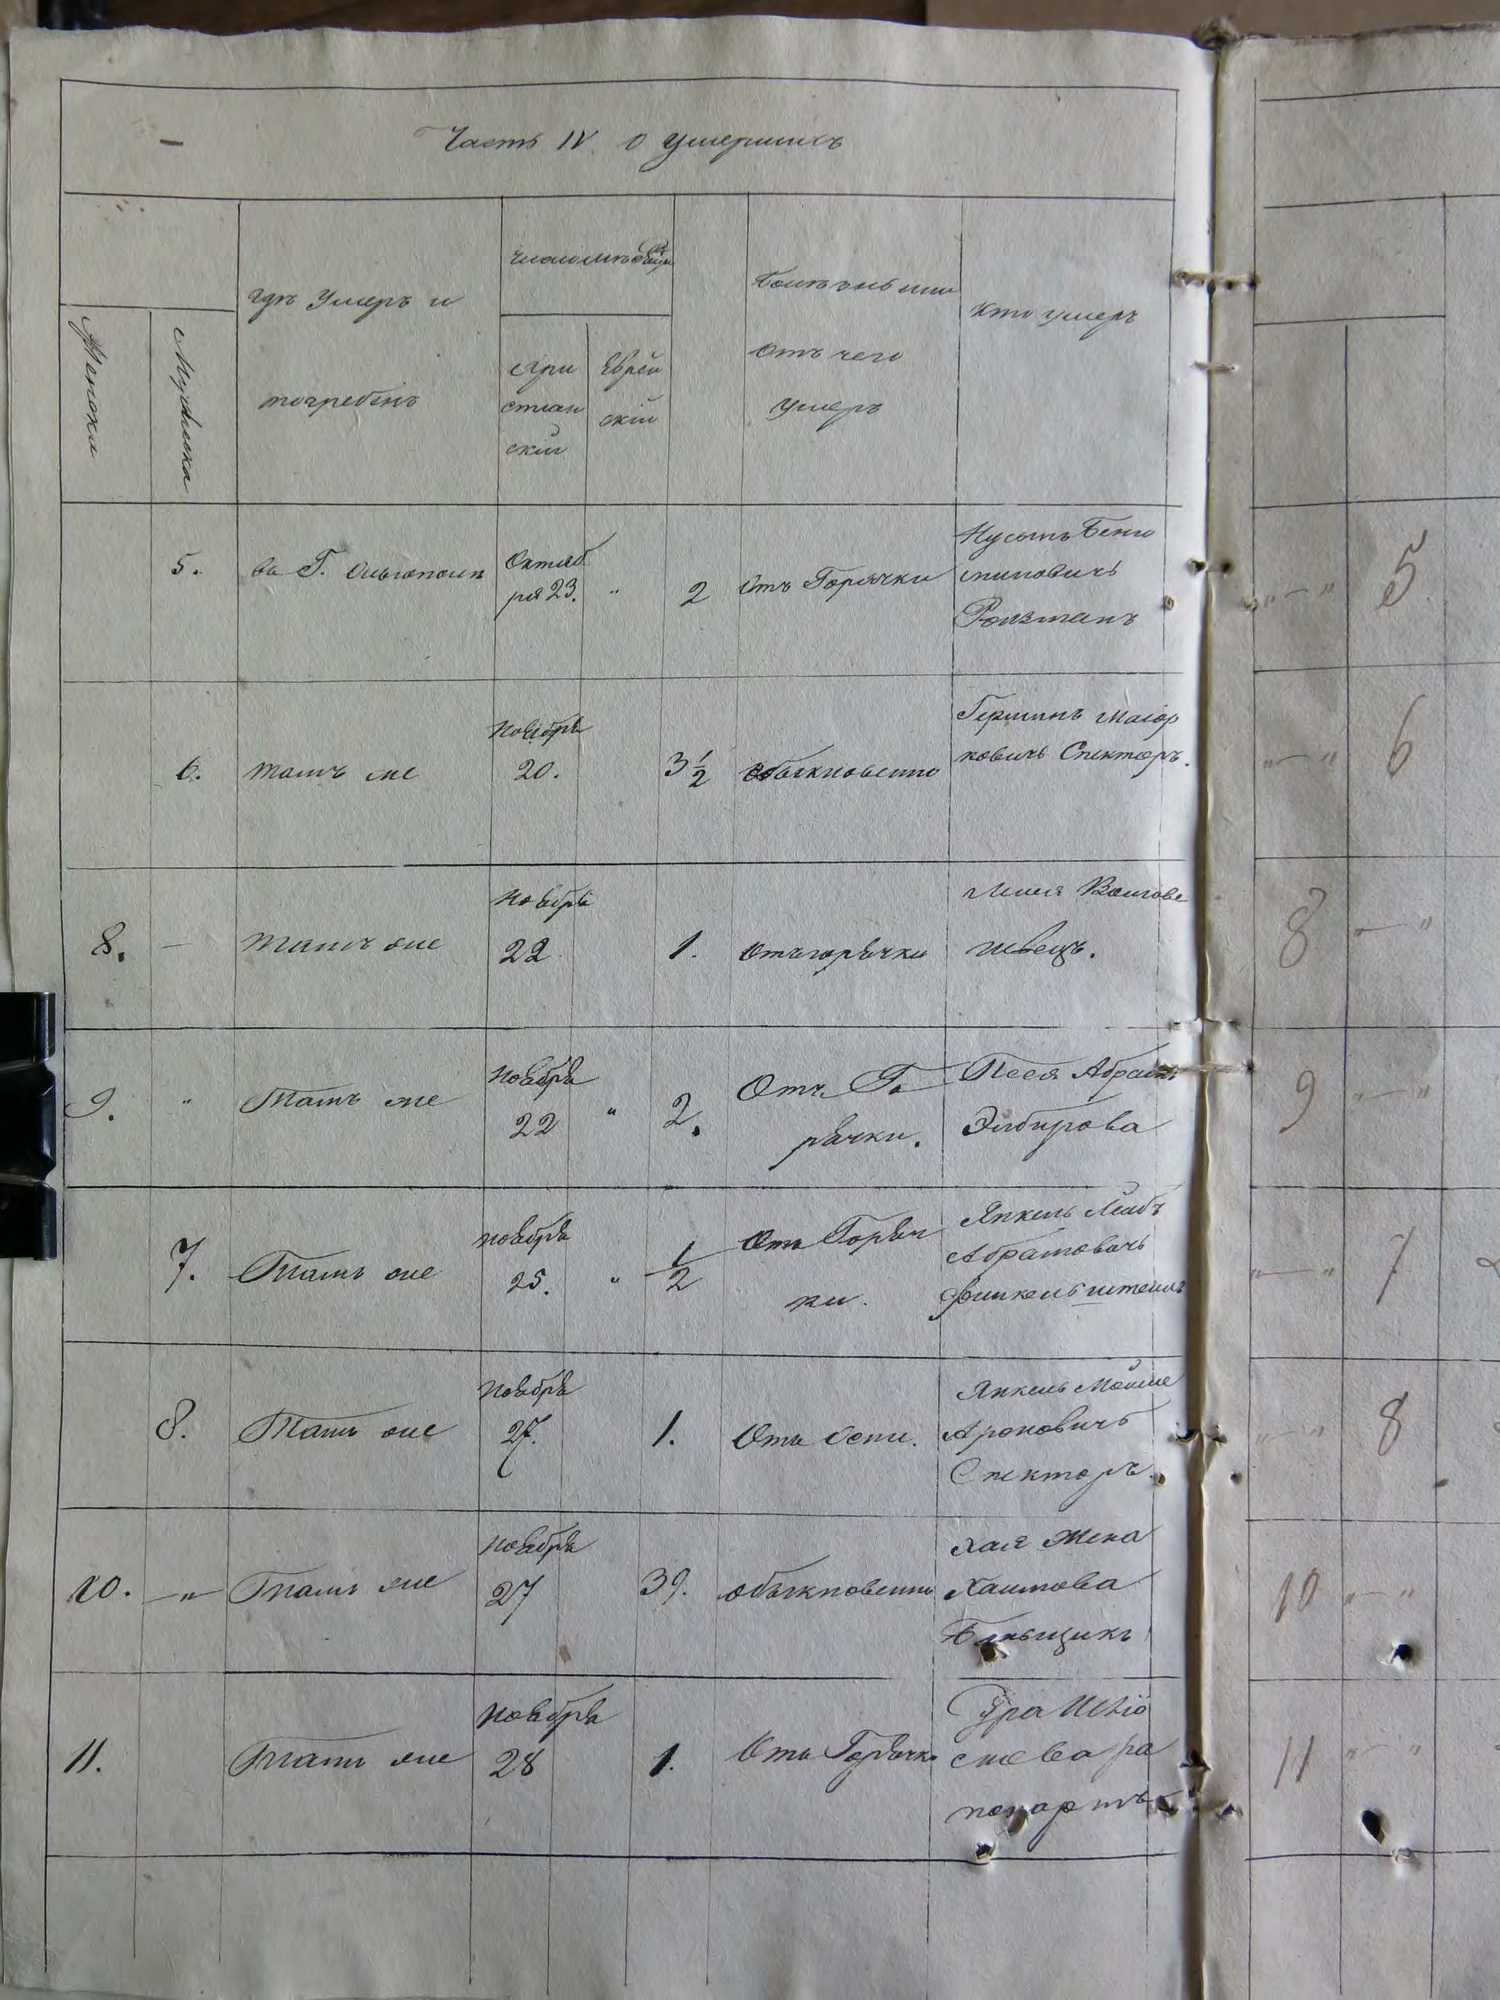 Часть IV о умершихъ
Женска
Мужеска
гдѣ умеръ и
погребенъ
Хри
стиан
скій
Еврей
скій
отъ чего
умеръ
кто умеръ
5. въ Г. Ольгополѣ Октяб
ря 23. " 2 отъ Горячки
Нусынъ Бенi
миновичъ
Ройзманъ
5
6. тамъ же Ноября
20. 3 1/2 обыкновенно
Гершинъ Маіор
ковичъ Спекторъ.
6
8. — тамъ же Ноября
22 1. отъ горячки
Волгова
швецъ.
8
9. " Тамъ же Ноября
22 " 2. Отъ Го
рячки.
Песя Абрамъ
Элбирова
9
7. Тамъ же Ноября
25. " 1/2 отъ Горяч
ки.
Янкель Лейбъ
Абрамовичъ
Финкельштейнъ
7
8. Тамъ же Ноября
27. 1. Отъ оспи.
Янкель Мойше
Ароновичъ
Спекторъ.
8
10. —"— Тамъ же Ноября
27 39. обыкновенно
Хая Жена
Хаимова
10
11. Тамъ же Ноября
28 1. Отъ Горячки
11